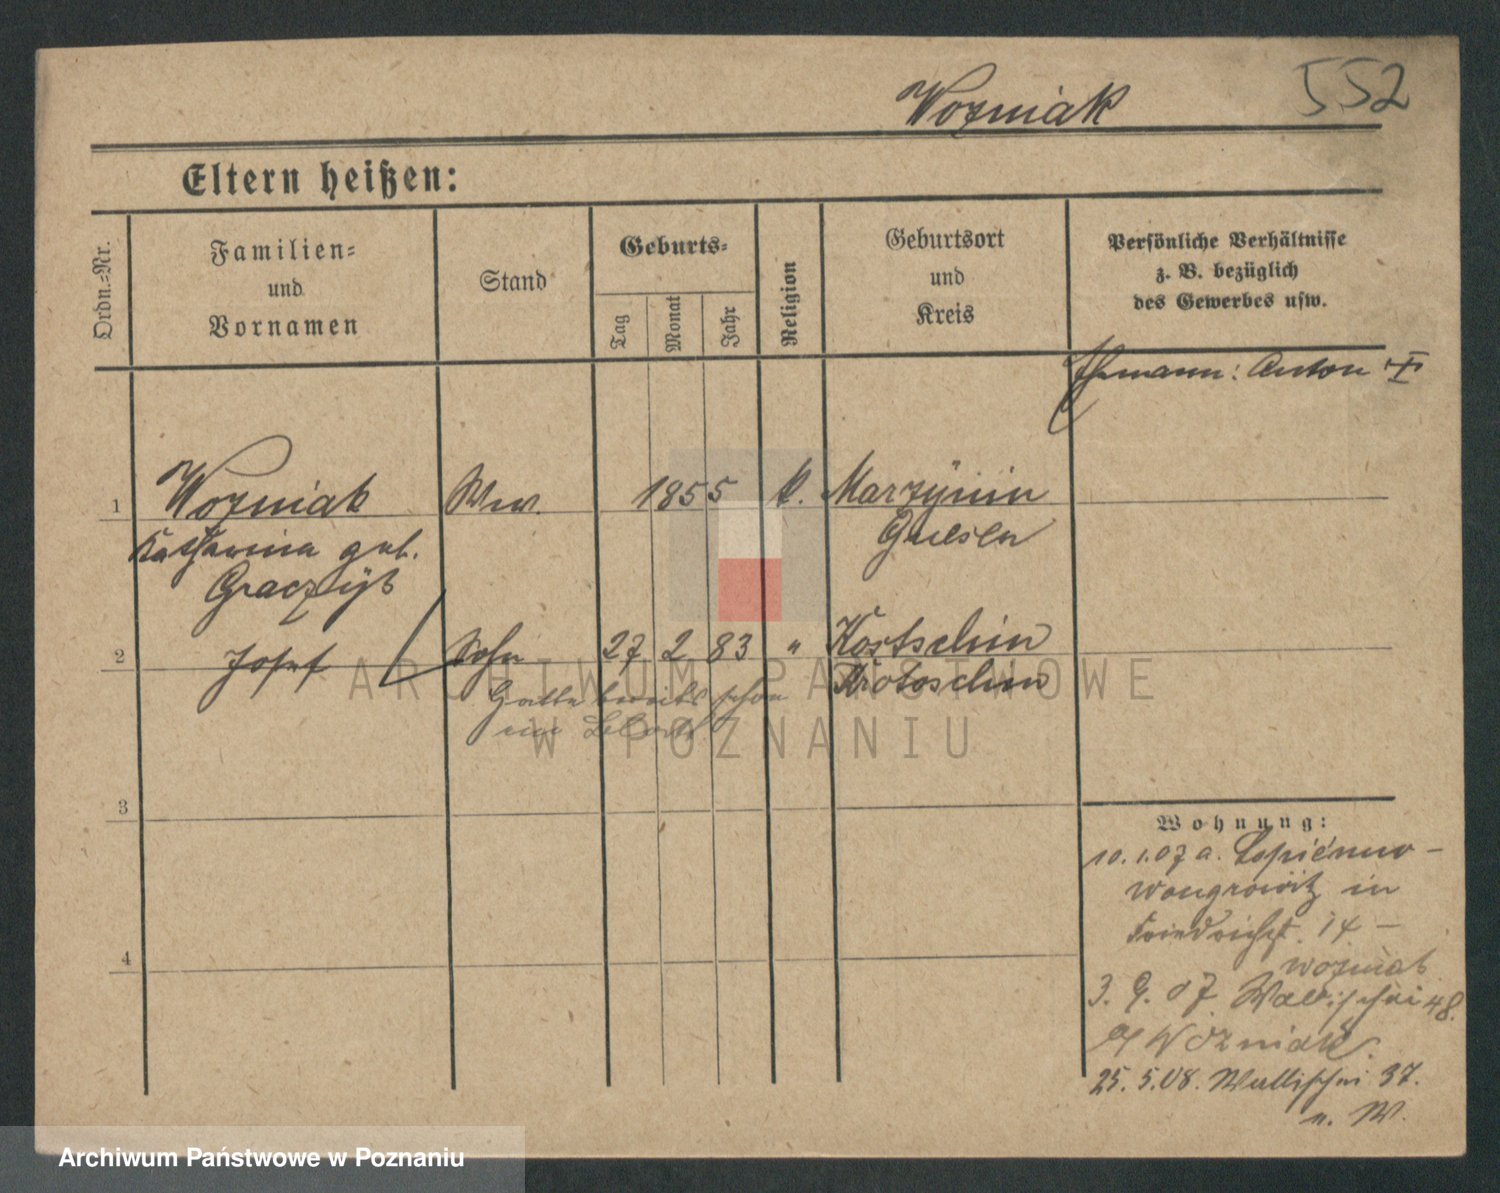 Wozniak 552
Eltern heißen:
Ordn.-Nr.
Familien-
und
Vornamen
Stand
Geburts-
Tag
Monat
Jahr
Religion
Geburtsort
und
Kreis
Persönliche Verhältnisse
z. B. bezüglich
des Gewerbes usw.
Ehemann: Anton †
1 Wozniak Ww. 1855 k. Marzynin
Katharina geb. Gnesen
Graczyk
2 Josef Sohn 27 2 83 " Kostschin
Krotoschin
3
4
Wohnung:
10.1.07 a. Lopienno -
Wongrowitz in
Friedrichst. 14 -
Wozniak
3. 9. 07 Wallischei 48.
b/ Wozniak.
25. 5. 08. Wallischei 37.
n. W.
ARCHIWUM PAŃSTWOWE
W POZNANIU
Archiwum Państwowe w Poznaniu